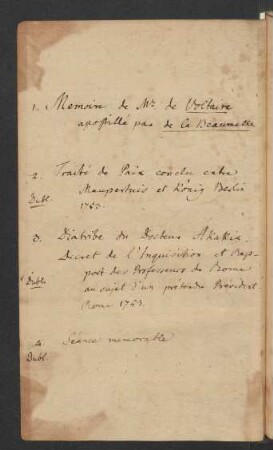 1. Memoire de Mr. de Voltaire
apostillé par de la Beaumelle
2. Traité de Paix conclu entre
Dubl. Maupertuis et König Berlin
1753.
3. Diatribe du Docteur Akakia.
Decret de l'Inquisition et Rap-
Dubl. port des Professeurs de Rome
au sujet d'un pretendu President
Rome 1753.
4. Séance memorable
Dubl.